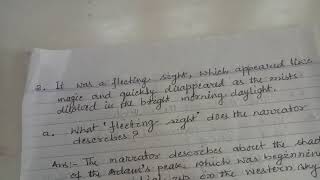 2. It was a fleeting sight, which appeared like
magic and quickly disappeared as the mists
dissolved in the bright morning daylight.
a. What "fleeting sight" does the narrator
describes?
Ans:- The narrator describes about the shad
of the Adam's peak, which was beginning
up on the western sky